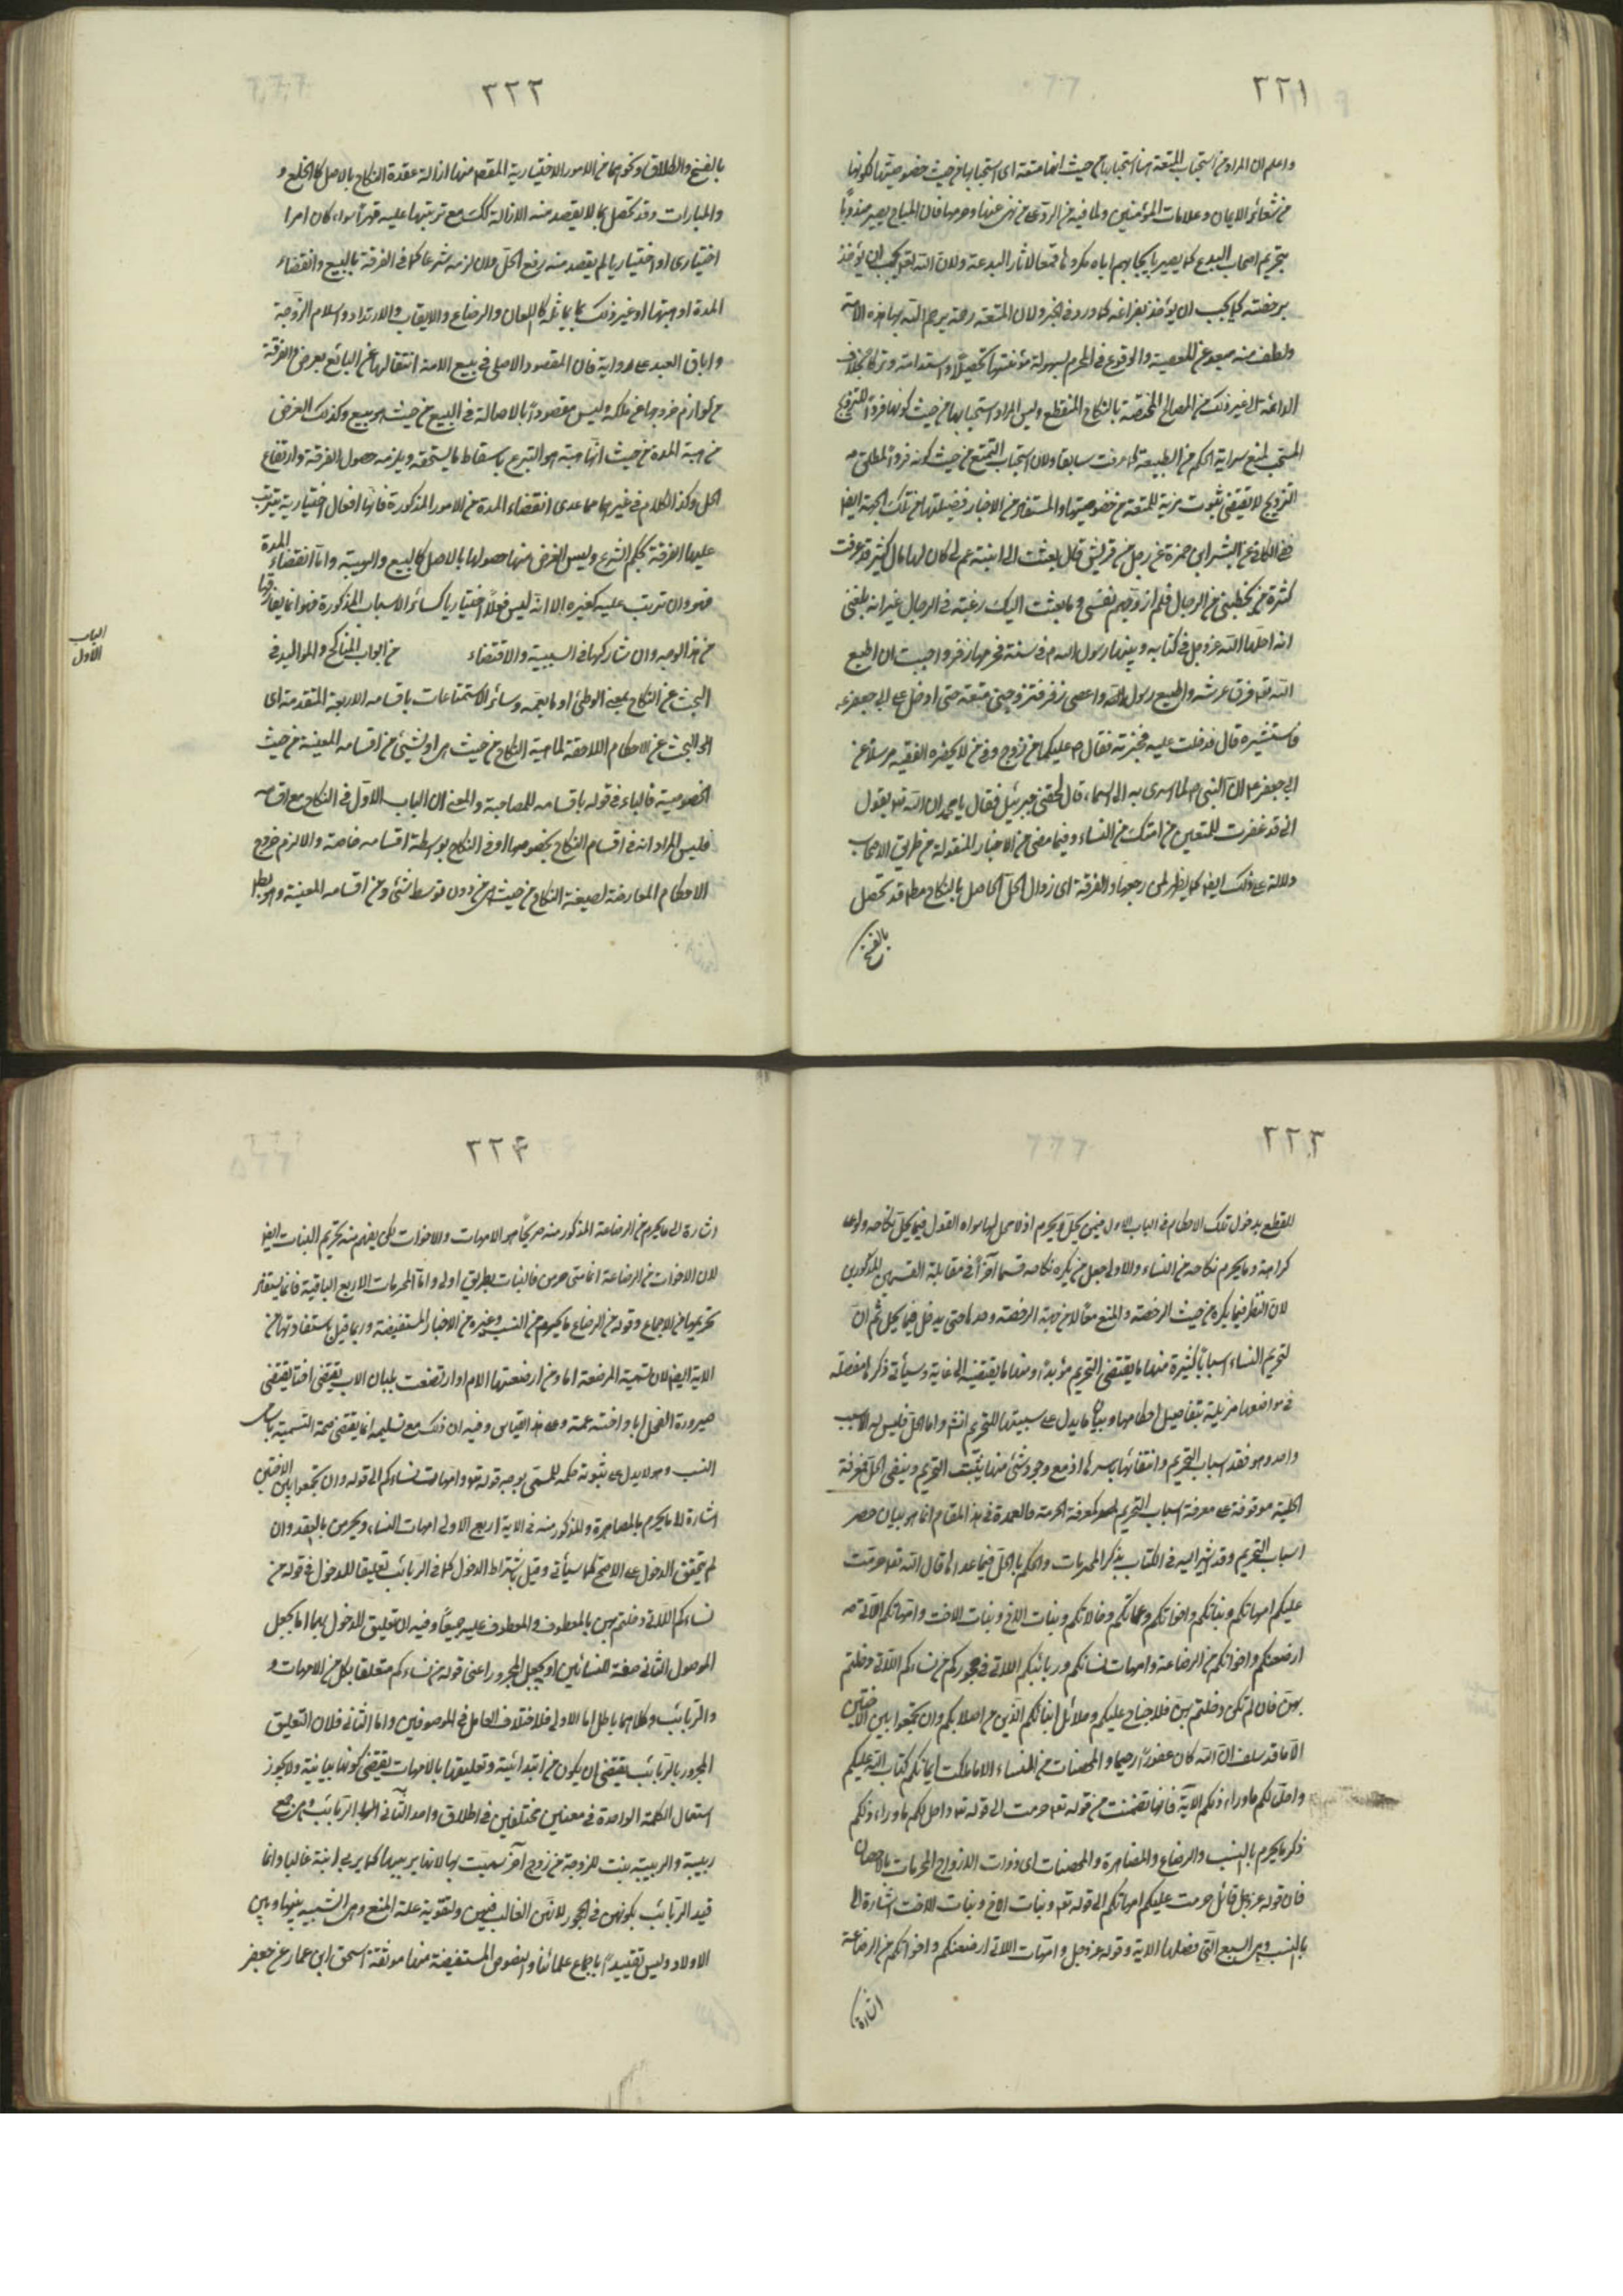 ٢٢١
واعلم ان المراد من استحباب المتعة هنا استحبابها من حيث انها متعة اى استحبابها من حيث خصوصيتها لكونها
من شعائر الايمان وعلامات المؤمنين ولما فيه من الرد على من نهى عنها وحرمها فان المباح يصير مندوباً
بتحريم اصحاب البدع كما يصير بايجابهم اياه مكروها قمعا لآثار البدعة ولان الله تعالى يحب ان يؤخذ
برخصته كما يحب ان يؤخذ بفرائضه كما ورد فى الخبر ولان المتعة رحمة يرحم الله بها هذه الامة
ولطف منه مبعد عن المعصية والوقوع فى المحرم لسهولة مؤنتها تحصيلاً واستدامة وتركا بخلاف
الدائمة الى غير ذلك من المصالح المختصة بالنكاح المنقطع وليس المراد استحبابها من حيث كونها فرداً للتزويج
المستحب لمنع سراية الحكم من الطبيعة كما عرفت سابقا ولان استحباب التمتع من حيث كونه فردا لمطلق
التزويج لا يقتضى ثبوت مزية للمتعة من خصوصيتها والمستفاد من الاخبار فضيلتها من تلك الجهة ايضا
ففى الكافى عن البشر ابى حمزة عن رجل من قريش قال بعثت الى ابنة عم لى كان لها مال كثير قد عرفت
كثرة من يخطبنى من الرجال فلم ازوجهم نفسى وما بعثت اليك رغبة فى الرجال غير انه بلغنى
انه احلها الله عز وجل فى كتابه وبينها رسول الله فى سنته فحرمها زفر واحببت ان اطيع
الله فوق عرشه واطيع رسول الله واعصى زفر فتزوجنى متعة حتى ادخل على ابى جعفر ع
فاستشيره قال فدخلت عليه فخبرته فقال
ابى جعفر ان النبى لما اسرى به الى السماء قال لحقنى جبرئيل فقال يا محمد ان الله يقول
انى قد غفرت للمتمتعين من امتك من النساء وفيما مضى من الاخبار المنقولة من طريق الاصحاب
دلالة على ذلك ايضا كما يظهر لمن راجعها والفرقة اى زوال الحل الحاصل بالنكاح مطلقا قد تحصل
بالفسخ
٢٢٢
بالفسخ والطلاق ونحوهما من الامور الاختيارية المقصود منها ازالة عقدة النكاح بالاصل كالخلع و
والمبارات وقد تحصل بما لا يقصد منه الازالة كك مع ترتبها عليه قهراً سواء كان امرا
اختيارى او اختياريا لم يقصد منه رفع الحل ولان لزمه شرعا كما فى الفرقة بالبيع وانقضاء
المدة او هبتها او غير ذلك مما يماثله كاللعان والرضاع والايقاب والارتداد واسلام الزوجة
واباق العبد على رواية فان المقصود الاصلى فى بيع الامة انتقالها عن البائع بعوض والفرقة
من لوازم خروجها عن ملكه وليس مقصوداً بالاصالة فى البيع من حيث هو بيع وكذلك الغرض
من هبة المدة من حيث انها هبة هو التبرع باسقاط ما يستحقه ويلزمه حصول الفرقة وارتفاع
الحل وكذا الكلام فى غيرهما مما عدى انقضاء المدة من الامور المذكورة فانها افعال اختيارية يترتب
عليها الفرقة بحكم الشرع وليس الغرض منها حصولها بالاصل كالبيع والهبة واما انقضاء المدة
فهو وان ترتب عليه كغيره الا انه ليس فعلاً اختياريا كسائر الاسباب المذكورة فهو انما يفارقها
من هذا الوجه وان شاركها فى السببية والاقتضاء من ابواب المناكح والمواليد فى
الباب الاول
البحث عن النكاح بمعنى الوطئ او ما يعمه وسائر الاستمتاعات باقسامه الاربعة المتقدمة اى
فى البحث عن الاحكام اللاحقة لماهية النكاح من حيث هى او لشيئ من اقسامه المعينة من حيث
الخصوصية فالباء فى قوله باقسامه للمصاحبة والمعنى ان الباب الاول فى النكاح مع اقسامه
فليس المراد انه فى اقسام النكاح بخصوصها او فى النكاح بواسطة اقسامه خاصة والا لزم خروج
الاحكام العارضة لصيغة النكاح من حيث هى من دون توسط شئ من اقسامه المعينة وهو بط
٢٢٣
للقطع بدخول تلك الاحكام فى الباب الاول فيمن يحل ويحرم
كراهة وما يحرم نكاحه من النساء والاولى جعل من يكره نكاحه قسما آخر فى مقابلة القسمين المذكورين
لان النظر فيما يكره من حيث الرخصة والمنع معاً لا من جهة الرخصة وحدها حتى يدخل فيما يحل ثم ان
لتحريم النساء اسباباً كثيرة منها ما يقتضى التحريم مؤبداً ومنها ما يقتضيه الى غاية وسيأتى ذكرها مفصلة
فى مواضعها مذيلة بتفاصيل احكامها وبيان ما يدل على سببيتها للتحريم انشاء واما الحل فليس له الا سبب
واحد وهو فقد اسباب التحريم وانتفائها باسرها اذ مع وجود شئ منها يثبت التحريم وينتفى الحل فمعرفة
الحلية موقوفة على معرفة اسباب التحريم كمعرفة الحرمة فالعمدة فى هذا المقام انما هو بيان حصر
اسباب التحريم وقد اشير اليه فى الكتاب بذكر المحرمات والحكم بالحل فيما عداها قال الله تعالى حرمت
عليكم امهاتكم وبناتكم واخواتكم وعماتكم وخالاتكم وبنات الاخ وبنات الاخت وامهاتكم اللاتى
ارضعنكم واخواتكم من الرضاعة وامهات نسائكم وربائبكم اللاتى فى حجوركم من نسائكم اللاتى دخلتم
بهن فان لم تكن دخلتم بهن فلا جناح عليكم وحلائل ابنائكم الذين من اصلابكم وان تجمعوا بين الاختين
الا ما قد سلف ان الله كان غفوراً رحيما والمحصنات من النساء الا ما ملكت ايمانكم كتاب الله عليكم
واحل لكم ما وراء ذلكم الآية فانها تضمنت من قوله تعالى حرمت الى قوله تعالى واحل لكم ما وراء ذلكم
ذكر ما يحرم بالنسب والرضاع والمصاهرة والمحصنات اى ذوات الازواج المحرمات بالاحصان
فان قوله عز وجل قائل حرمت عليكم امهاتكم الى قوله تعالى وبنات الاخ وبنات الاخت اشارة الى
بالنسب وهى السبع التى فصلها الآية وقوله عز وجل وامهات اللاتى ارضعنكم واخواتكم من الرضاعة
اشارة
٢٢٤
اشارة الى ما يحرم من الرضاعة المذكور منه صريحاً هو الامهات والاخوات لكن يفهم منه تحريم البنات ايضا
لان الاخوات من الرضاعة اذا حرمن فالبنات بطريق اولى واما المحرمات الاربع الباقية فانما يستفاد
تحريمها من الاجماع وقوله من الرضاع ما يحرم من النسب وغيره من الاخبار المستفيضة وربما قيل باستفادتها من
الآية ايضا لان تسمية المرضعة اما ومن ارضعتها الام او ارتضعت بلبان الاب يقتضى اختا يقتضى
صيرورة الفحل ابا واخته عمة وعلى هذا القياس وفيه ان ذلك مع تسليمه انما يقتضى صحة التسمية باسامى
النسب وهو لا يدل على ثبوت حكمه للمسمى بوجه قوله تعالى وامهات نسائكم الى قوله وان تجمعوا بين الاختين
اشارة لما يحرم بالمصاهرة والمذكور منه فى الآية اربع الاولى امهات النساء ويحرمن بالعقد وان
لم يتحقق الدخول على الاصح كما سيأتى وقيل باشتراط الدخول كما فى الربائب تعليقا للدخول فى قوله من
نسائكم اللاتى دخلتم بهن بالمعطوف والمعطوف عليه جميعاً وفيه ان تعليق الدخول بهما اما بجعل
الموصول الثانى صفة للنسائين او بجعل المجرور اعنى قوله من نسائكم متعلقا بكل من الامهات و
والربائب وكلاهما باطل اما الاول فلاختلاف العامل فى الموصوفين واما الثانى فلان التعليق
المجرور بالربائب يقتضى ان يكون من ابتدائية وتعليقها بالامهات يقتضى كونها بيانية ولا يجوز
استعمال الكلمة الواحدة فى معنيين مختلفين فى اطلاق واحد الثانى الربائب وهى جمع
ربيبة والربيبة بنت الزوجة من زوج آخر سميت بها لانه يربيها كما يربى ابنة غالبا وانما
قيد الربائب بكونهن فى الحجور لانه الغالب فيهن ولتقوية علة المنع وهى الشبه بينها وبين
الاولاد وليس تقييداً باجماع علمائنا والنصوص المستفيضة منها موثقة اسحق ابن عمار عن جعفر